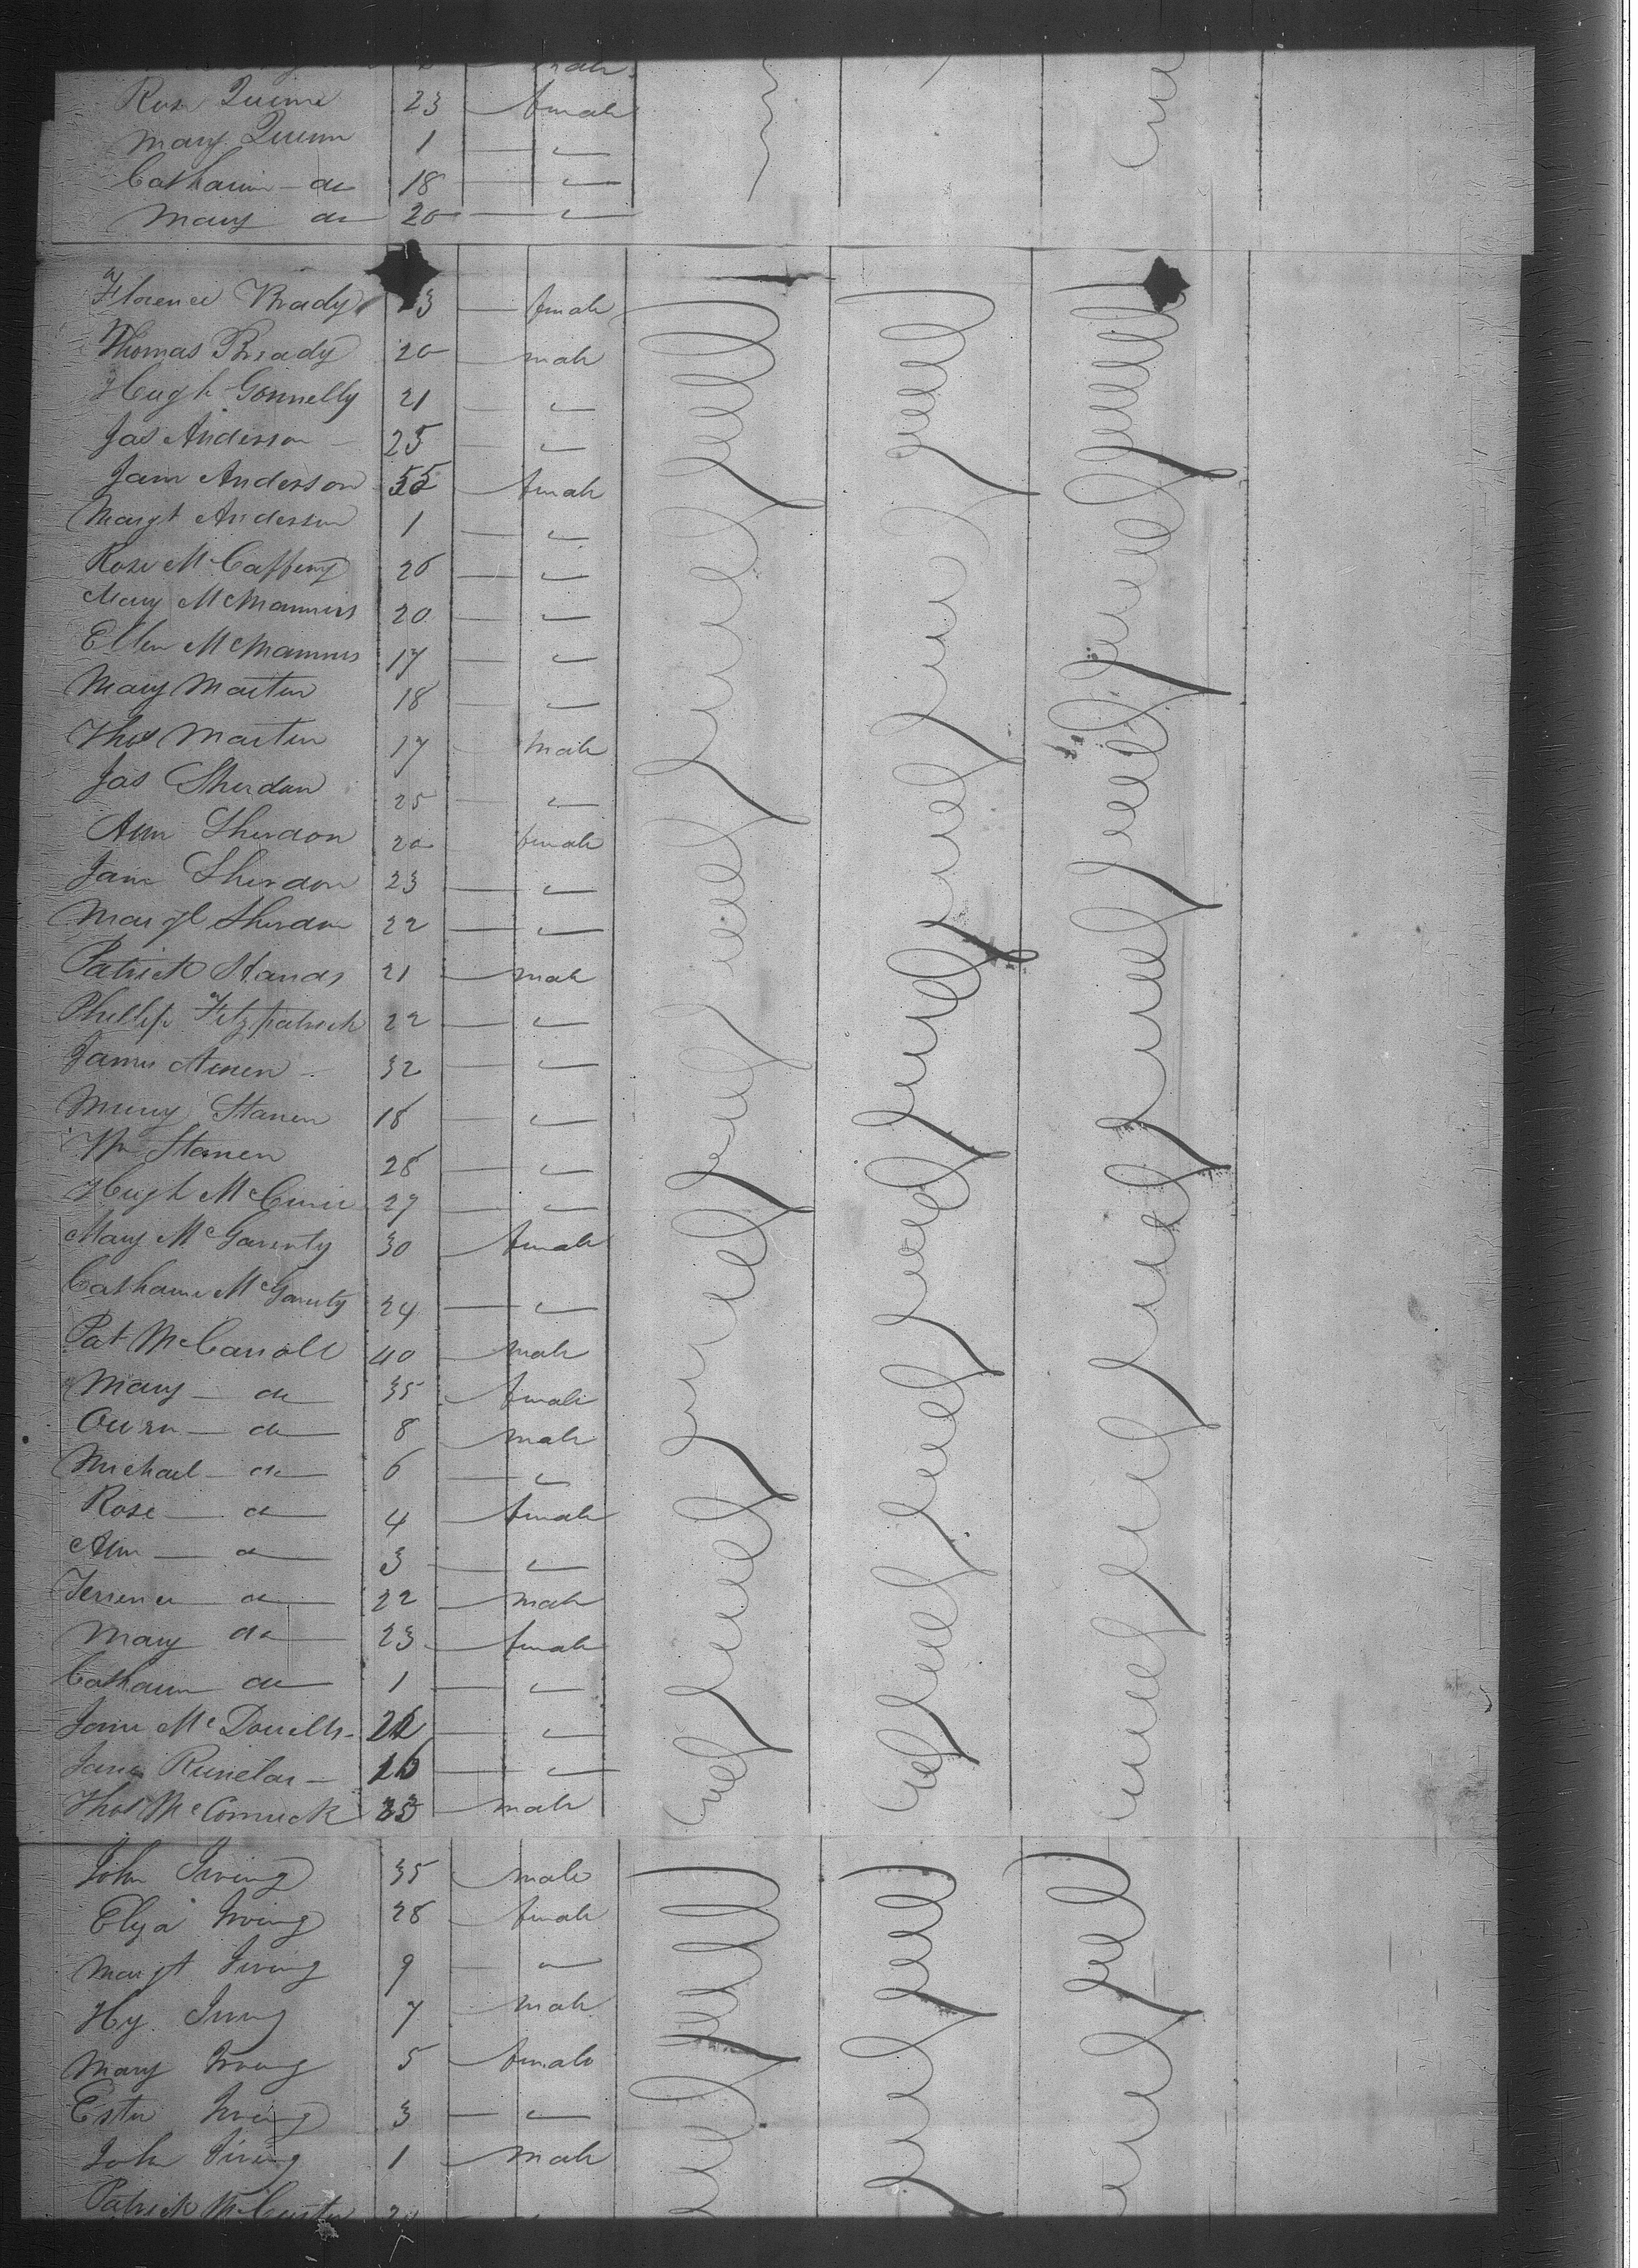 male
Rose Quinn 23 — female
Mary Quinn 1 — "
Catharin — do 18 — "
Mary do 20 — "
Florence Brady 3 — female
Thomas Brady 20 — male
Hugh Gonnelly 21 — "
Jas Anderson — 25 — "
Jam Anderson 55 — female
Margt Anderson 1 — "
Rose McCaffery 26 — "
Mary McMannis 20 — "
Ellen McMannis 17 — "
Mary Martin 18 — "
Thos Martin 17 — male
Jas Sherdan 25 — "
Ann Sherdon 20 — female
Jane Sherdon 23 — "
Margt Sherdon 22 — "
Patrick Hands 21 — male
Phillip Fitzpatrick 22 — "
James 32 — "
Stanen 18 — "
Wm Stanen 26 — "
Hugh McCuin 27 — "
Mary McGarity 30 — female
Catharine McGarity 24 — "
Pat McCarroll 40 — male
Mary — do 35 — female
Owen — do 8 — male
Michael — do 6 — "
Rose — do 4 — female
Ann — do 3 — "
Terrence do 22 — male
Mary do 23 — female
Catharin do 1 — "
Jane Mc — "
Jane — "
Thos McCormick male
John Irving 35 — male
Eliza Irving 28 — female
Margt Irving 9 — "
Hy. Irving 7 male
Mary Irving 5 — female
Ester Irving 3 — "
John Irving 1 — male
Patrick